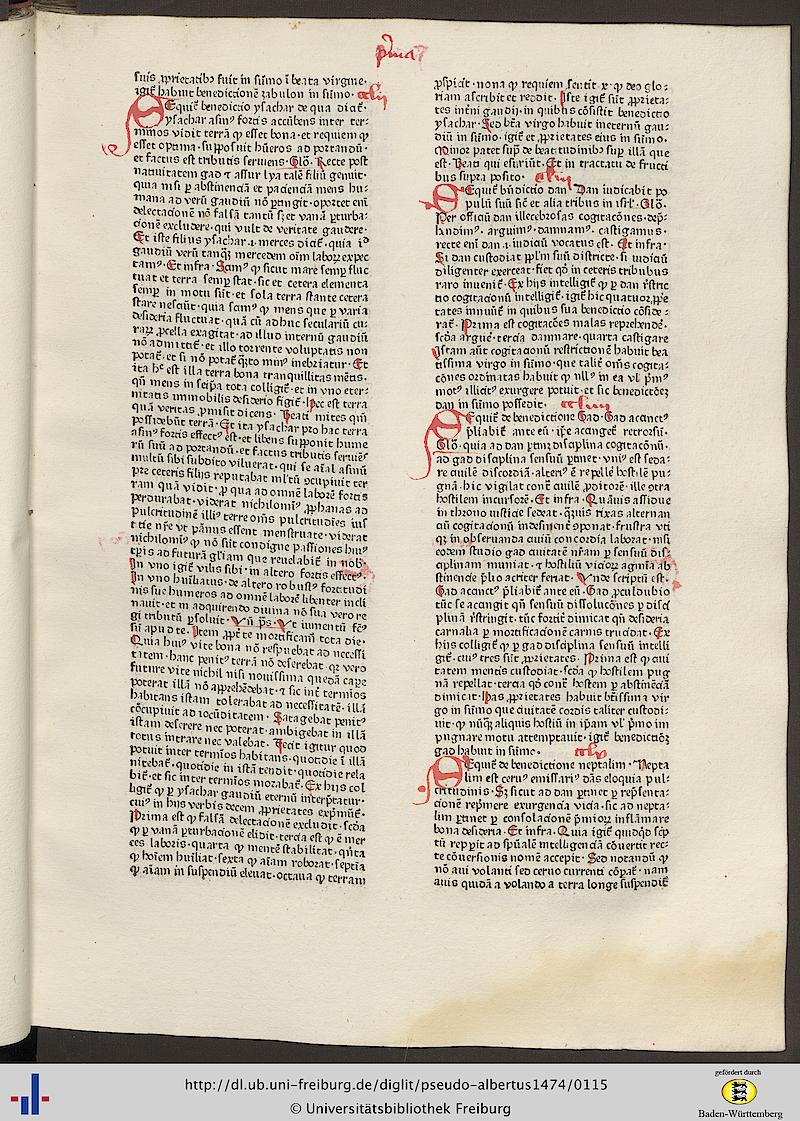 suis ꝓprietatibꝫ fuit in sūmo ī beata virgine·
igit̄ habuit benedictionē zabulon in sūmo·
SEquit̄ benedictio ysachar de qua dicit̄
ysachar asinꝰ fortis accūbens inter ter-
minos vidit terrā ꝙ esset bona·et requiem ꝙ
esset optima·supposuit hūeros ad portandū·
et factus est tributis seruiens·Glō·Recte post
natiuitatem gad ⁊ assur lya talē filiū genuit·
quia nisi ꝑ abstinenciā et pacienciā mens hu-
mana ad verū gaudiū nō ꝑtingit·oportet em̄
delectacionē nō falsā tantū sꝫ et vanā ꝑturba-
cionē excludere·qui vult de veritate gaudere·
Et iste filius ysachar·i·merces dicit̄·quia id
gaudiū
Et infra·Scimꝰ ꝙ sicut mare semꝑ fluc
tuat et terra semꝑ stat·sic et cetera elementa
semꝑ in motu sūt·et sola terra stante cetera
stare nesciūt·quia scimꝰ ꝙ mens que ꝑ varia
desideria fluctuat·quā cū adhuc seculariū cu-
raꝝ ꝓcella exagitat·ad illud internū gaudiū
nō admittit̄·et illo torrente voluptatis non
potat̄·et si nō potat̄ qͣnto minꝰ inebriatur·Et
ita hec est illa terra bona tranquillitas mētis·
qn̄ mens in seip̄a tota colligit̄·et in vno eter-
nitatis immobilis desiderio figit̄·Hec est terra
quā veritas ꝓmisit dicens·Beati mites qm̄
possidebūt terrā·Et ita ysachar pro hac terra
asinꝰ fortis effectꝰ est·et libens supponit hume
rū suū ad portandū·et factus tributis seruiēs
multū sibi subdito viluerat·qui se aīal asinū
pre ceteris filijs reputabat
ram quā vidit·ꝓ qua ad omnē laborē fortis
perdurabat·viderat nichilomīꝰ ꝓphanas ad
pulcritudinē illiꝰ terre om̄s pulcritudīes ius
ticie nr̄e vt pānus essent menstruate·viderat
nichilomīꝰ ꝙ nō sūt condigne passiones huiꝰ
tꝑis ad futurā gl̄iam que reuelabit̄ in nob·
In vno igit̄ vilis sibi·in altero fortis effectꝰ·
In vno humiliatus·de altero robustꝰ fortitudi
nis sue humeros ad omnē laborē libenter incli
nauit·et in adquirendo diuina nō sua vero re
gi tributū ꝑsoluit·Vn̄ ps·Vt iumentū fcūs
sū apud te·Item ꝓpt̄ te mortificam̄ tota die·
Quia huiꝰ vite bona nō respuebat ad necessi
tatem·hanc penitꝰ terrā nō deserebat·qꝛ vero
future vite nichil nisi nouissima quedā caꝑe
poterat illā nō apprehēdebat·⁊ sic int̄ termīos
habitans istam tolerabat ad necessitatē·illam
cōcupiuit ad iocūditatem·Satagebat penitꝰ
istam deserere nec poterat·ambigebat in illā
totus intrare nec valebat·Fecit igitur quod
potuit inter termīos habitans·quotidie ī illā
nitebat̄·quotidie in istā tendit·quotidie rela
bit̄·et sic inter termīos morabat̄·Ex hijs col
ligit̄ ꝙ ꝑ ysachar gaudiū eternū interp̄tatur·
cuiꝰ in hijs verbis decem ꝓprietates exp̄mūt̄·
Prima est ꝙ falsā delectacionē excludit·scd̄a
ꝙ ꝑ vanā ꝑturbacionē elidit·tercia est ꝙ ē mer
ces laboris·quarta ꝙ mentē stabilitat·qn̄ta
ꝙ hoīem huiliat·sexta ꝙ aīam roborat·septīa
ꝙ aīam in suspendiū eleuat·octaua ꝙ terram
ꝓspicit·nona ꝙ requiem sentit·x·ꝙ deo glo-
riam ascribit et reddit·Iste igit̄ sūt ꝓprieta-
tes int̄ni gaudij·in quibus cōsistit benedictio
ysachar·Sed btā virgo habuit īneternū gau-
diū in sūmo·igit̄ et ꝓprietates eiꝰ in sūmo·
Minor patet supͣ de beatitudinibꝰ supͣ illā que
est·Beati qui esuriūt·Et in tractatu de fructi
bus supra posito·
SEquit̄ bn̄dictio dan Dan iudicabit po
pulū suū sic̄ et alia tribus in isrl̄·Glō·
Per officiū dan illecebrosas cogitacōnes·dep̄-
hendimꝰ·arguimꝰ·damnamꝰ·castigamus·
recte em̄ dan·i·iudiciū vocatus est·Et infra·
Si dan custodiat pp̄lm suū districte·si iudiciū
diligenter exerceat·fiet qd̄ in ceteris tribubus
raro inuenit̄·Ex hijs intelligit̄ ꝙ ꝑ dan rs̄tric
tio cogitacionū intelligit̄·igit̄ hic quatuor ꝓpe
tates innuūt̄ in quibus sua benedictio cōside-
rat̄·Prima est cogitacōes malas reprehendē·
scd̄a argue·tercia damnare·quarta castigare
Istam aūt cogitacionū restrictionē habuit bea
tissima virgo in sūmo·que talit̄ om̄s cogita-
cōnes ordinatas habuit ꝙ nllꝰ in ea vl̄ pͥmꝰ
motꝰ illicitꝰ exurgere potuit·et sic benedictōeꝫ
dan in sūmo possedit·
SEquit̄ de benedictione Gad·Gad accinctꝰ
p̄liabit̄ ante eū·ip̄e accinget̄ retrorsū·
Glō·quia ad dan ꝑtinꝫ disciplina cogitacōnū·
ad gad disciplina sensuū ꝑtinet·vniꝰ est seda-
re ciuilē discordiā·alteriꝰ ē repellē hostilē pu-
gnā·hic vigilat cont̄ ciuilē ꝓditorē·ille ꝯtra
hostilem incursorē·Et infra·Quāuis assidue
in throno iusticie sedeat·qͣuis rixas alternan
ciū cogitacionū indesinent̄ cōponat·frustra vti
qꝫ in obseruanda ciuiū concordia laborat·nisi
eodem studio gad ciuitatē nr̄am ꝑ sensuū dis-
ciplinam muniat·⁊ hostiliū vicioꝝ agmīa ab
stinencie p̄lio acriter feriat·Vnde scriptū est·
Gad accinctꝰ p̄liabit̄ ante eū·Gad ꝓculdubio
tūc se accingit qn̄ sensuū dissolucōnes ꝑ disci
plinā rs̄tringit·tūc fortit̄ dimicat qn̄ desideria
carnalia ꝑ mortificacionē carnis trucidat·Ex
hijs colligit̄ ꝙ ꝑ gad disciplina sensuū intelli
git̄·cuiꝰ tres sūt ꝓprietates·Prima est ꝙ ciui
tatem mentis custodiat·scd̄a ꝙ hostilem pug
nā repellat·tercia qd̄ cont̄ hostem ꝑ abstinēciā
dimicit·Has ꝓprietates habuit btīssima vir
go in sūmo que ciuitatē cordis taliter custodi-
uit·ꝙ nūqͣꝫ aliquis hostiū in ip̄am vl̄ pͥmo im
pugnare motu attemptauit·igit̄ benedictōeꝫ
gad habuit in sūmo·
SEquit̄ de benedictione neptalim·Nepta
lim est ceruꝰ emissariꝰ dās eloquia pul-
critudinis·Sꝫ sicut ad dan ꝑtinet ꝑ rep̄senta-
cionē rep̄mere exurgencia vicia·sic ad nepta-
lim ꝑtinet ꝑ consolacionē p̄mioꝝ inflāmare
bona desideria·Et infra·Quia igit̄ quidqd̄ scp̄
tū repp̄it ad spūalē intelligenciā cōuertit rec-
te cōuersionis nomē accepit·Sed notandū ꝙ
nō aui volanti sed ceruo currenti cōꝑat̄·nam
auis quidā a volando a terra longe suspendit̄
http://dl.ub.uni-freiburg.de/diglit/pseudo-albertus1474/0115
© Universitätsbibliothek Freiburg
gefördert durch
Baden-Württemberg